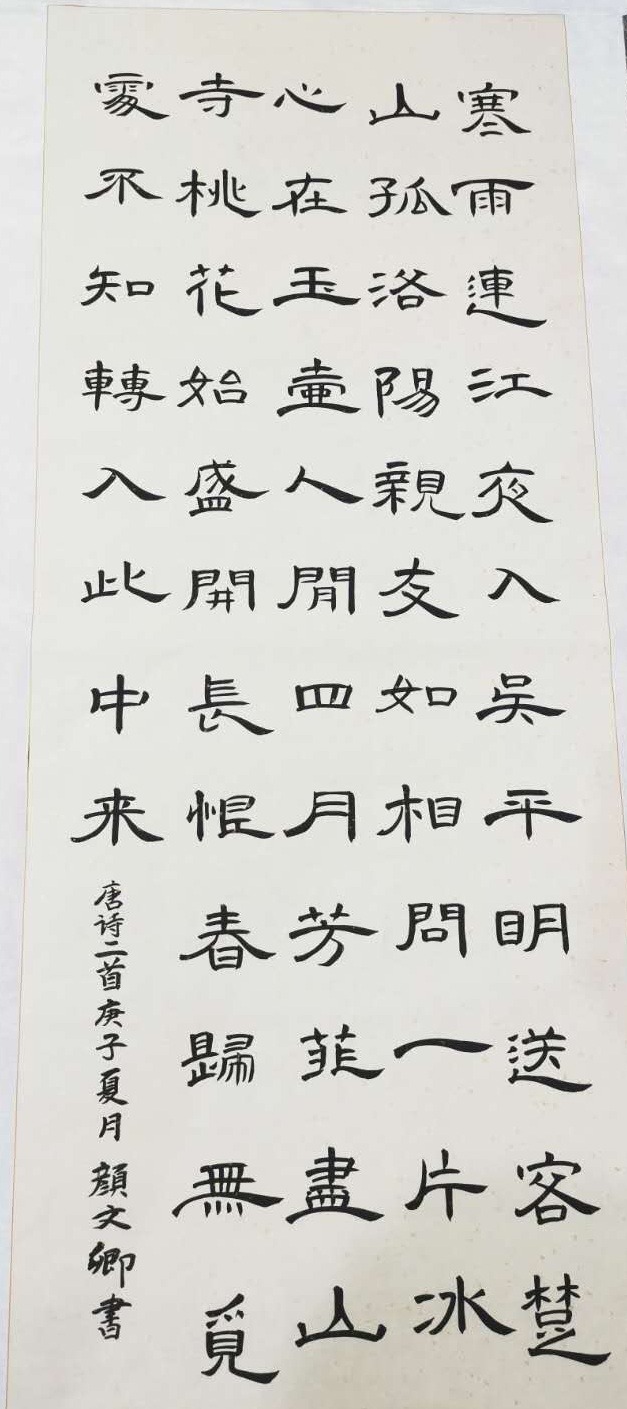 寒雨連江夜入吳平明送客楚
山孤洛陽親友如相問一片冰
心在玉壺人閒四月芳菲盡山
寺桃花始盛開長恨春歸無覓
處不知轉入此中来
唐诗二首庚子夏月 顏文卿書